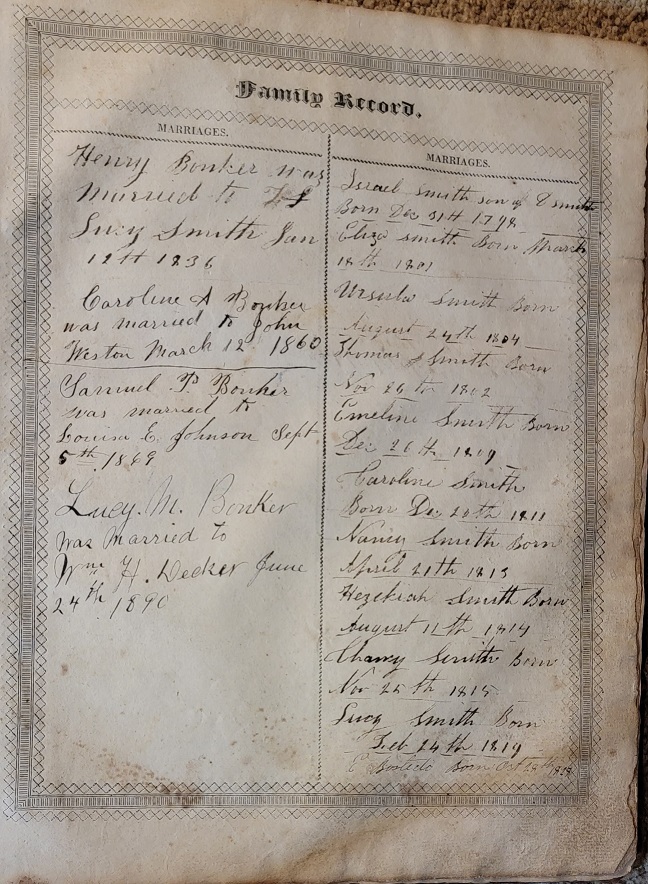 Family Record.
MARRIAGES.
Henry Bonker was
married to
Lucy Smith Jan
12th 1836
Caroline A Bonker
was married to John
Weston March 12 1860
Samuel P. Bonker
was married to
Louisa E. Johnson Sept
5th 1869
Lucy. M. Bonker
was Married to
Wm H. Decker June
24th 1890
MARRIAGES.
Israel Smith son of Smith
Born Dec 31st 1798
Eliza Smith Born March
18th 1801
Ursula Smith Born
August 24th 1804
Thomas S Smith Born
Nov 26th 1802
Emeline Smith Born
Dec 26th
Caroline Smith
Born Dec 20th 1811
Nancy Smith Born
April 21th 1813
Hezekiah Smith Born
August 11th 1814
Smith Born
Nov 25th 1815
Lucy Smith Born
Feb 24th 1819
Born Oct